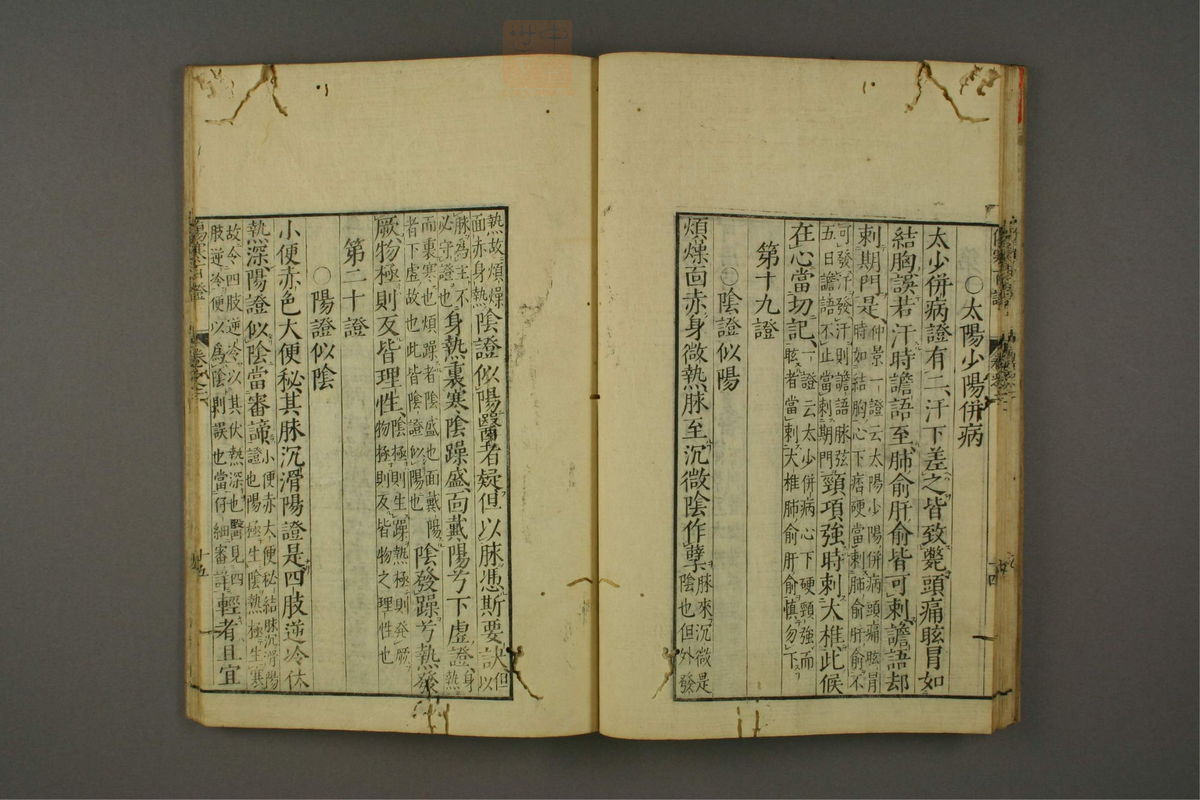 〇太陽少陽併病
太少併病證有二汗下差之皆致斃頭痛眩冒如
結胸誤若汗時譫語至肺俞肝俞皆可刺譫語却
刺期門是仲景一證云太陽少陽併病頭痛眩冒
時如結胸心下痞硬當刺肺俞肝俞不
可發汗發汗則譫語脉弦
五日譫語不止當刺期門頸項強時刺大椎此候
在心當切記一證云太少併病心下硬頸強而
眩者當刺大椎肺俞肝俞慎勿下
第十九證
〇陰證似陽
煩燥面赤身微熱脉至沉微陰作孽脉來沉微是
陰也但外發
熱故煩燥
面赤身熱陰證似陽醫者疑但以脉憑斯要訣但以
脉為主不
必守證也身熱裏寒陰躁盛面戴陽兮下虛證身熱
而裏寒也煩躁者陰盛也面戴陽
者下虛故也此皆陰證似陽也陰發躁兮熱發
厥物極則反皆理性陰極則生躁熱極則發厥
物極則反皆物之理性也
第二十證
〇陽證似陰
小便赤色大便秘其脉沉滑陽證是四肢逆冷伏
熱深陽證似陰當審諦小便赤大便秘結脉沉滑陽
證也陽極生陰熱極生寒
故令四肢逆冷以其伏熱深也醫見四
肢逆冷便以爲陰則誤也當仔細審詳輕者且宜
卷之二
十五